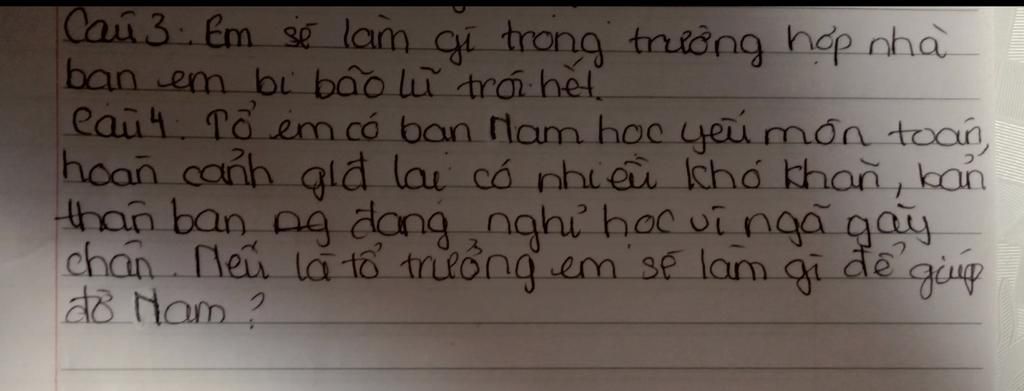 Câu 3. Em sẽ làm gì trong trường hợp nhà
bạn em bị bão lũ trôi hết.
Câu 4. Tổ em có bạn Nam học yếu môn toán,
hoàn cảnh gia lại có nhiều khó khăn, bản
thân bạn đang nghỉ học vì ngã gãy
chân. Nếu là tổ trưởng em sẽ làm gì để giúp
đỡ Nam?